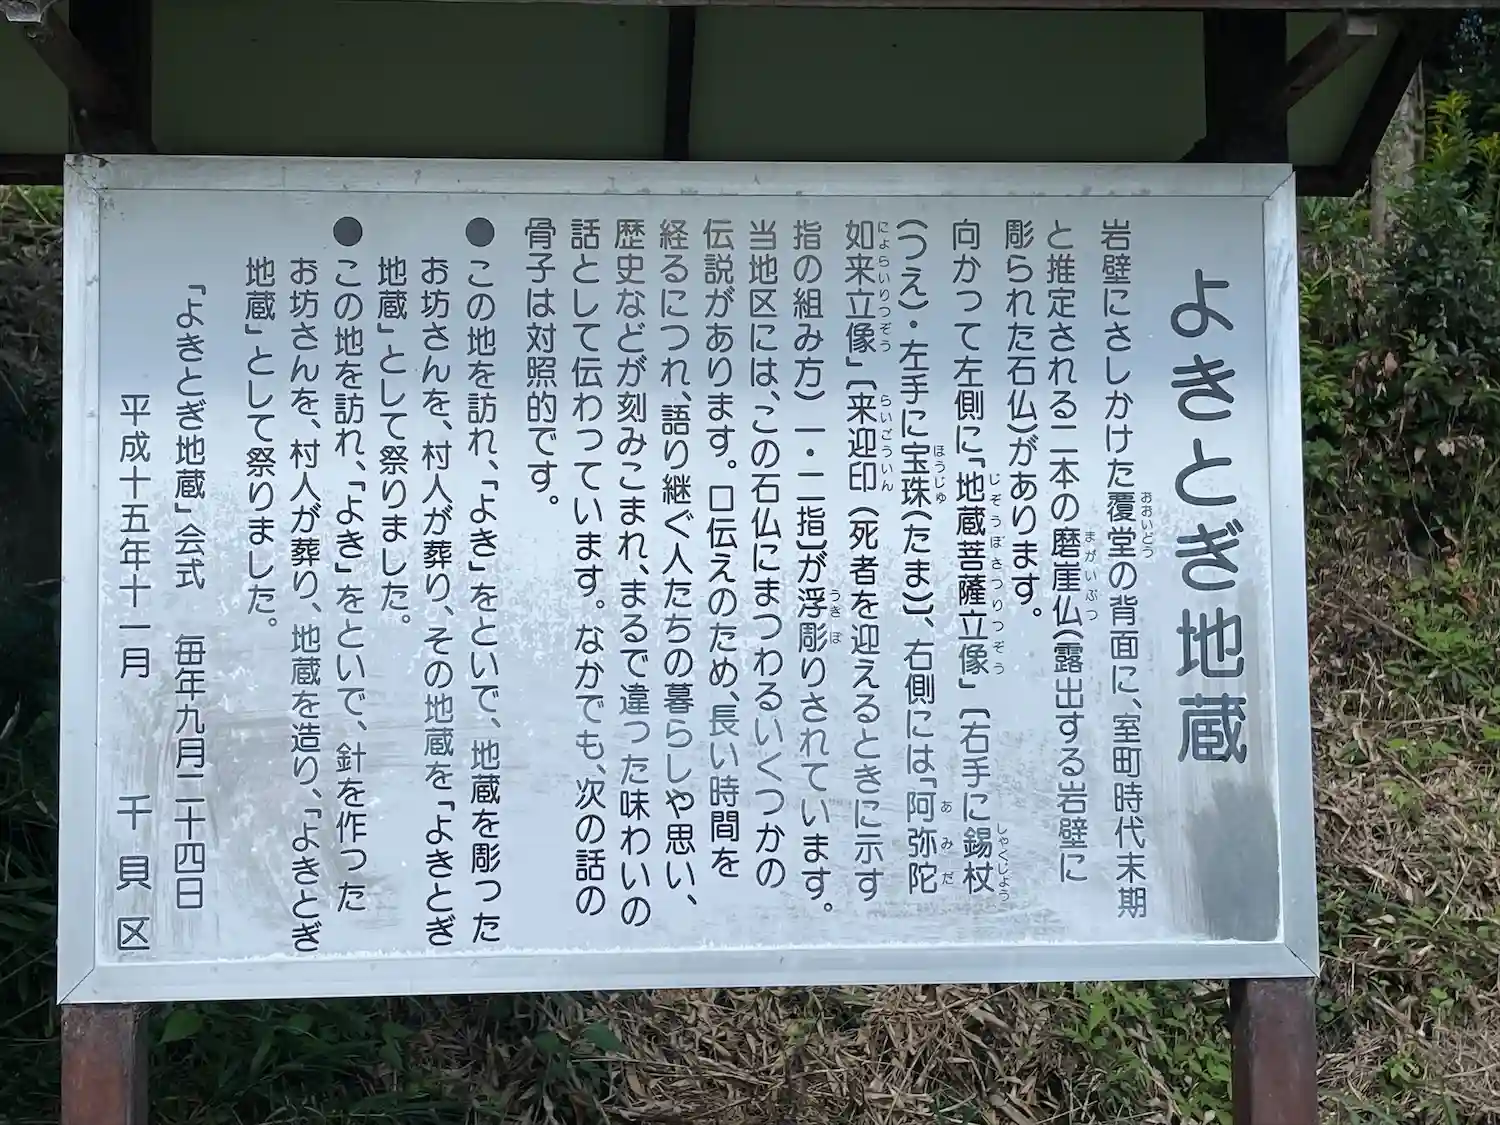 よきとぎ地蔵
岩壁にさしかけた覆堂の背面に、室町時代末期
おおいどう
と推定される二本の磨崖仏(露出する岩壁に
まがいぶつ
彫られた石仏)があります。
向かって左側に「地蔵菩薩立像」〔右手に錫杖
じぞうぼさつりつぞう
しゃくじょう
(つえ)・左手に宝珠(たま)〕、右側には「阿弥陀
ほうじゅ
あみだ
如来立像」〔来迎印(死者を迎えるときに示す
にょらいりつぞう
らいごういん
指の組み方)一・二指〕が浮彫りされています。
うきぼ
当地区には、この石仏にまつわるいくつかの
伝説があります。口伝えのため、長い時間を
経るにつれ、語り継ぐ人たちの暮らしや思い、
歴史などが刻みこまれ、まるで違った味わいの
話として伝わっています。なかでも、次の話の
骨子は対照的です。
●この地を訪れ、「よき」をといで、地蔵を彫った
お坊さんを、村人が葬り、その地蔵を「よきとぎ
地蔵」として祭りました。
●この地を訪れ、「よき」をといで、針を作った
お坊さんを、村人が葬り、地蔵を造り、「よきとぎ
地蔵」として祭りました。
「よきとぎ地蔵」会式 毎年九月二十四日
平成十五年十一月 千貝区